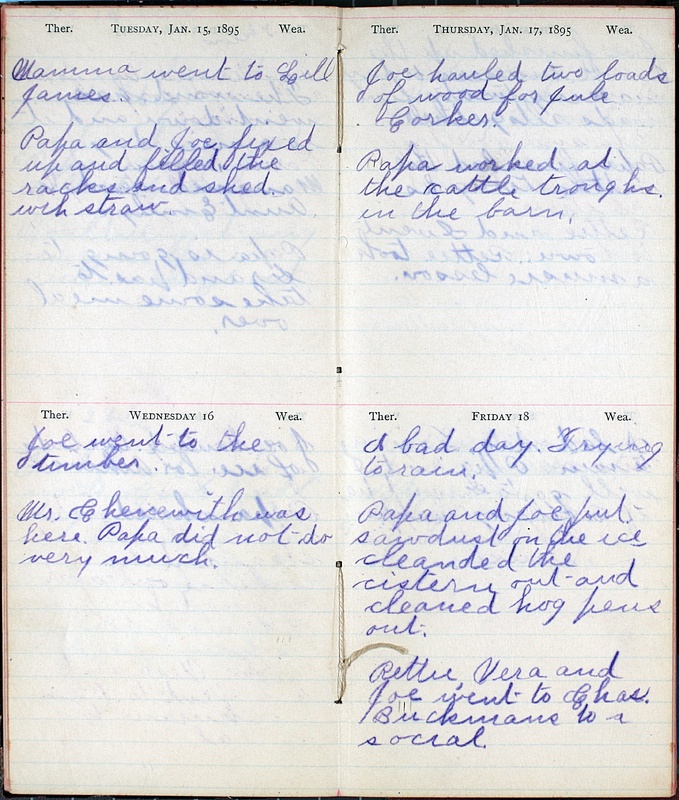 Ther. TUESDAY, JAN. 15, 1895 Wea.
Mamma went to Lill
James.
Papa and Joe fixed
up and filled the
racks and shed
with straw.
Ther. WEDNESDAY 16 Wea.
Joe went to the
timber.
Mr. was
here. Papa did not do
very much.
Ther. THURSDAY, JAN. 17, 1895 Wea.
Joe hauled two loads
of wood for Jule
Corker.
Papa worked at
the cattle troughs.
in the barn.
Ther. FRIDAY 18 Wea.
A bad day. Trying
to rain.
Papa and Joe put
sawdust on the ice
cleanded the
cistern out and
cleaned hog pens
out.
Rettie, Vera and
Joe went to Chas.
Buckmans to a
social.